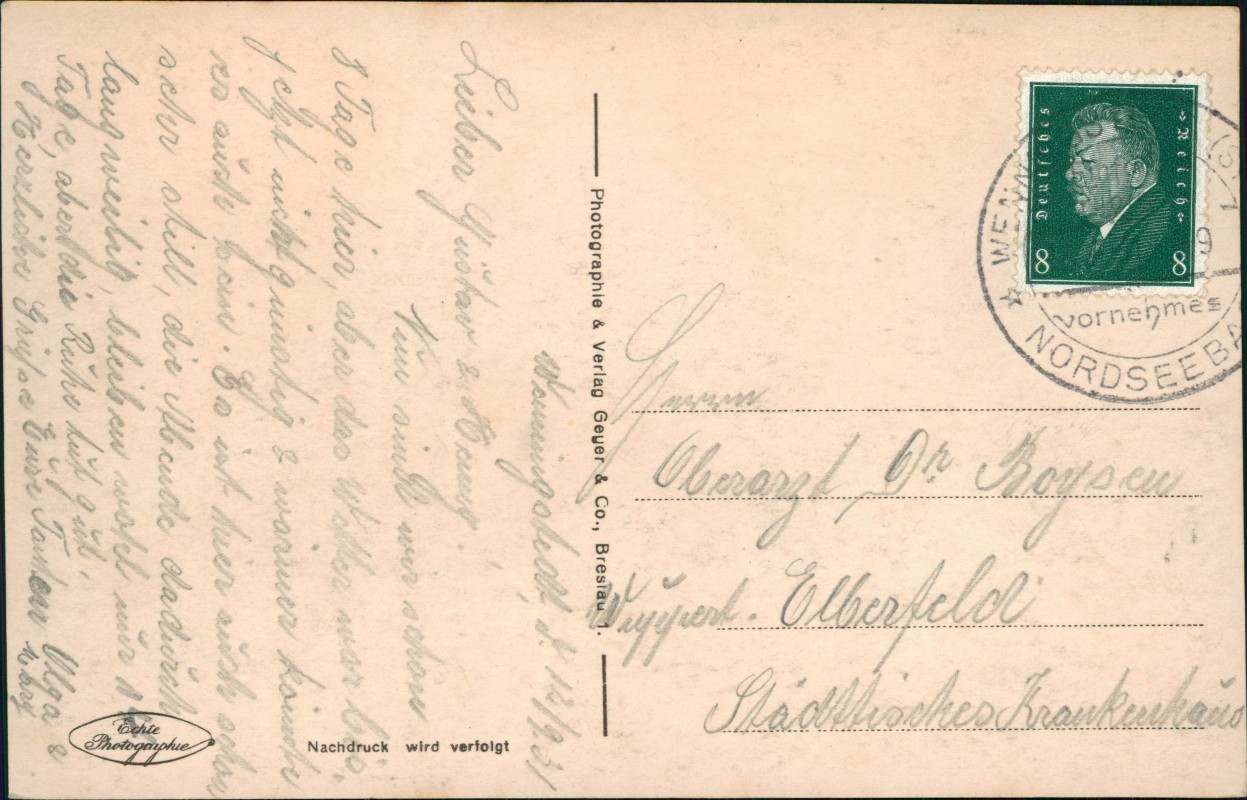 Wenningstedt, d. 14/9.31
Lieber Gustav & Henny!
Nun sind wir schon
8 Tage hier, aber das Wetter war bis
jetzt nicht günstig & wärmer könnte
es auch sein. Es ist hier auch schon
sehr still, die Abende dadurch
langweilig, bleiben wohl nur
Tage, aber die Ruhe tut gut.
Herzliche Grüsse Eure Tanten Olga &
Photographie & Verlag Geyer & Co., Breslau 1.
Nachdruck wird verfolgt
Echte
Photographie
Deutsches Reich
8 8
WENNING
vornehmes
NORDSEEBA
Herrn
Oberarzt Dr Boysen
Wuppert. Elberfeld
Städttisches Krankenhaus